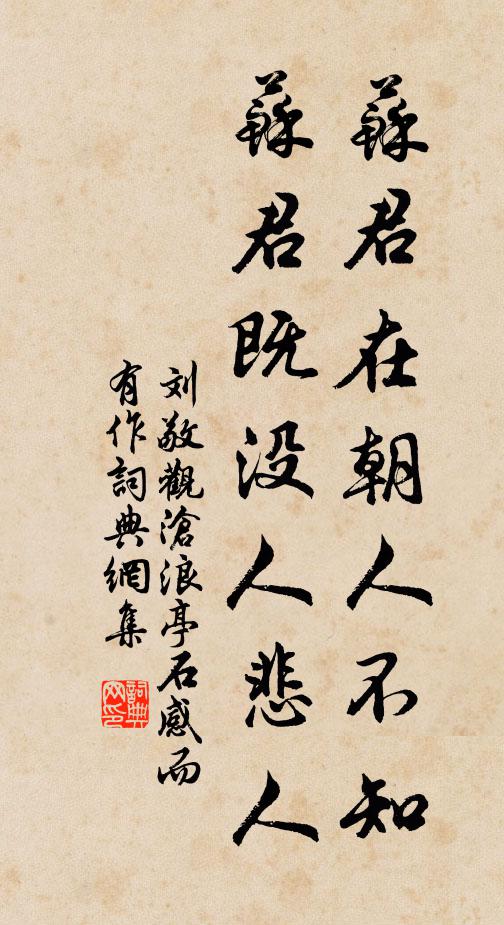 蘇君在朝人不知
蘇君既没人悲人
刘敞觀滄浪亭石感而
有作詞典網集
詞典网印